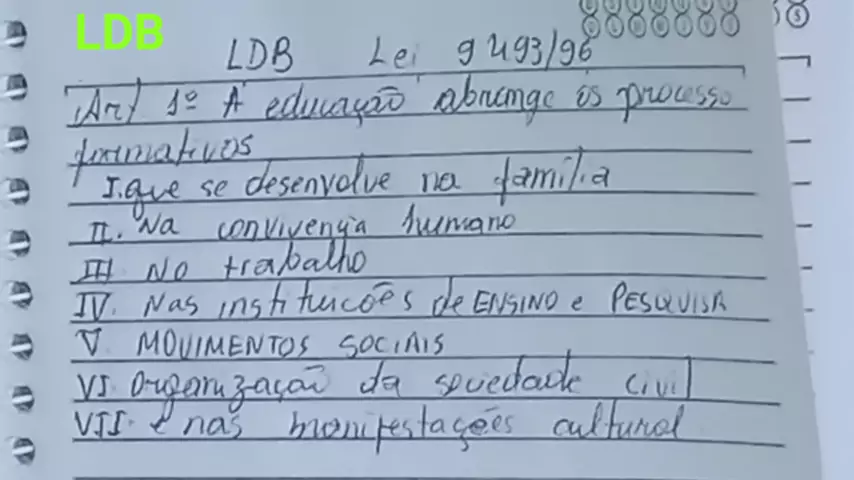 LDB
LDB Lei 9493/96
Art 1º A educação abrange os processo
formativos
I. que se desenvolve na família
II. Na convivença humano
III No trabalho
IV. Nas instituições de ENSINO e PESQUISA
V MOVIMENTOS SOCIAIS
VI Organização da sociedade civil
VII. e nas manifestações cultural